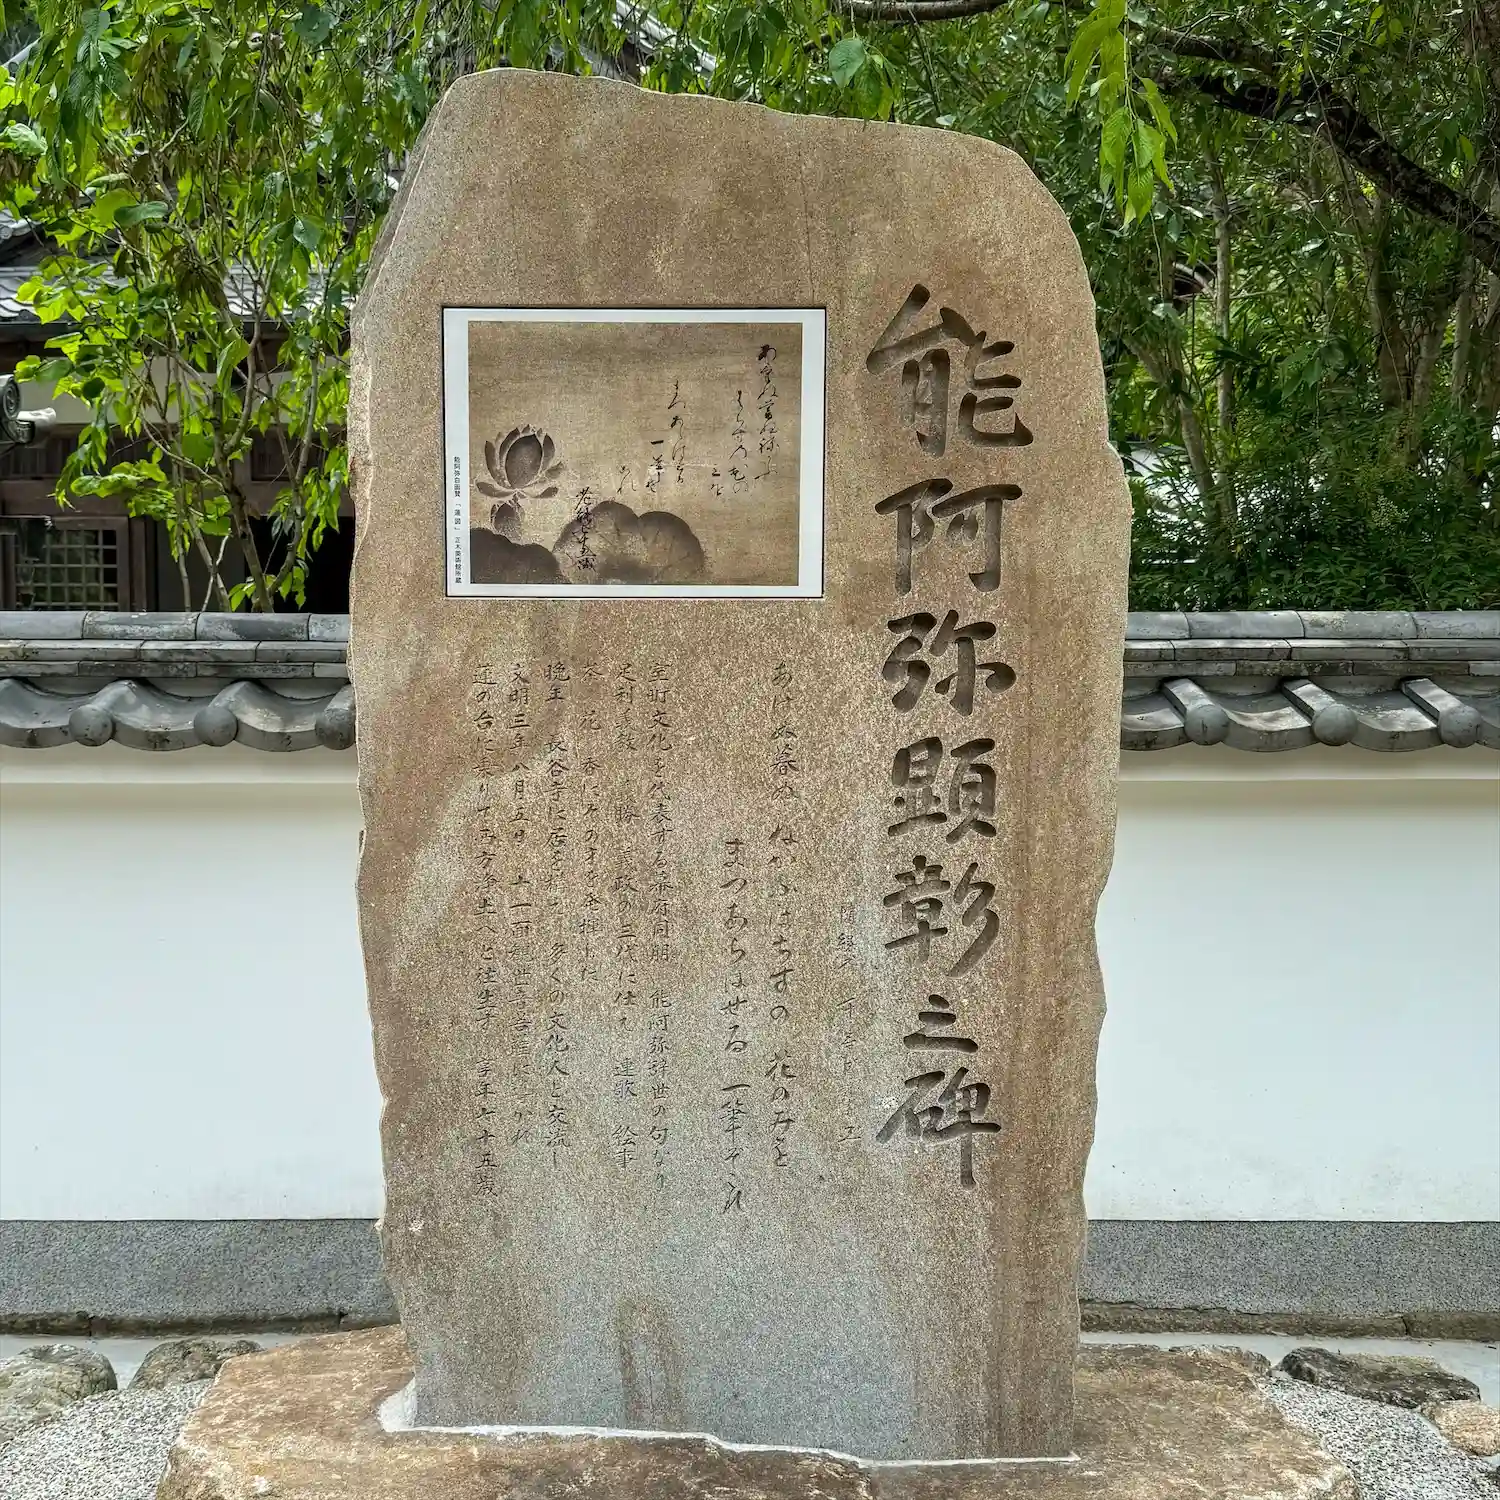 能阿弥顕彰之碑
あけぬ暮ぬ ねがふはちすの 花のみを
まつあらはせる 一筆ぞこれ
室町文化を代表する幕府同朋 能阿弥辞世の句なり
足利義教 義勝 義政の三代に仕え 連歌 絵事
茶 花 香にその才を発揮した
晩年 長谷寺に居を構え 多くの文化人と交流し
文明三年八月五日 十一面観世音菩薩に導かれ
蓮の台に乗りて西方浄土へと往生す 享年七十五歳
能阿弥自画賛「蓮図」 正木美術館所蔵